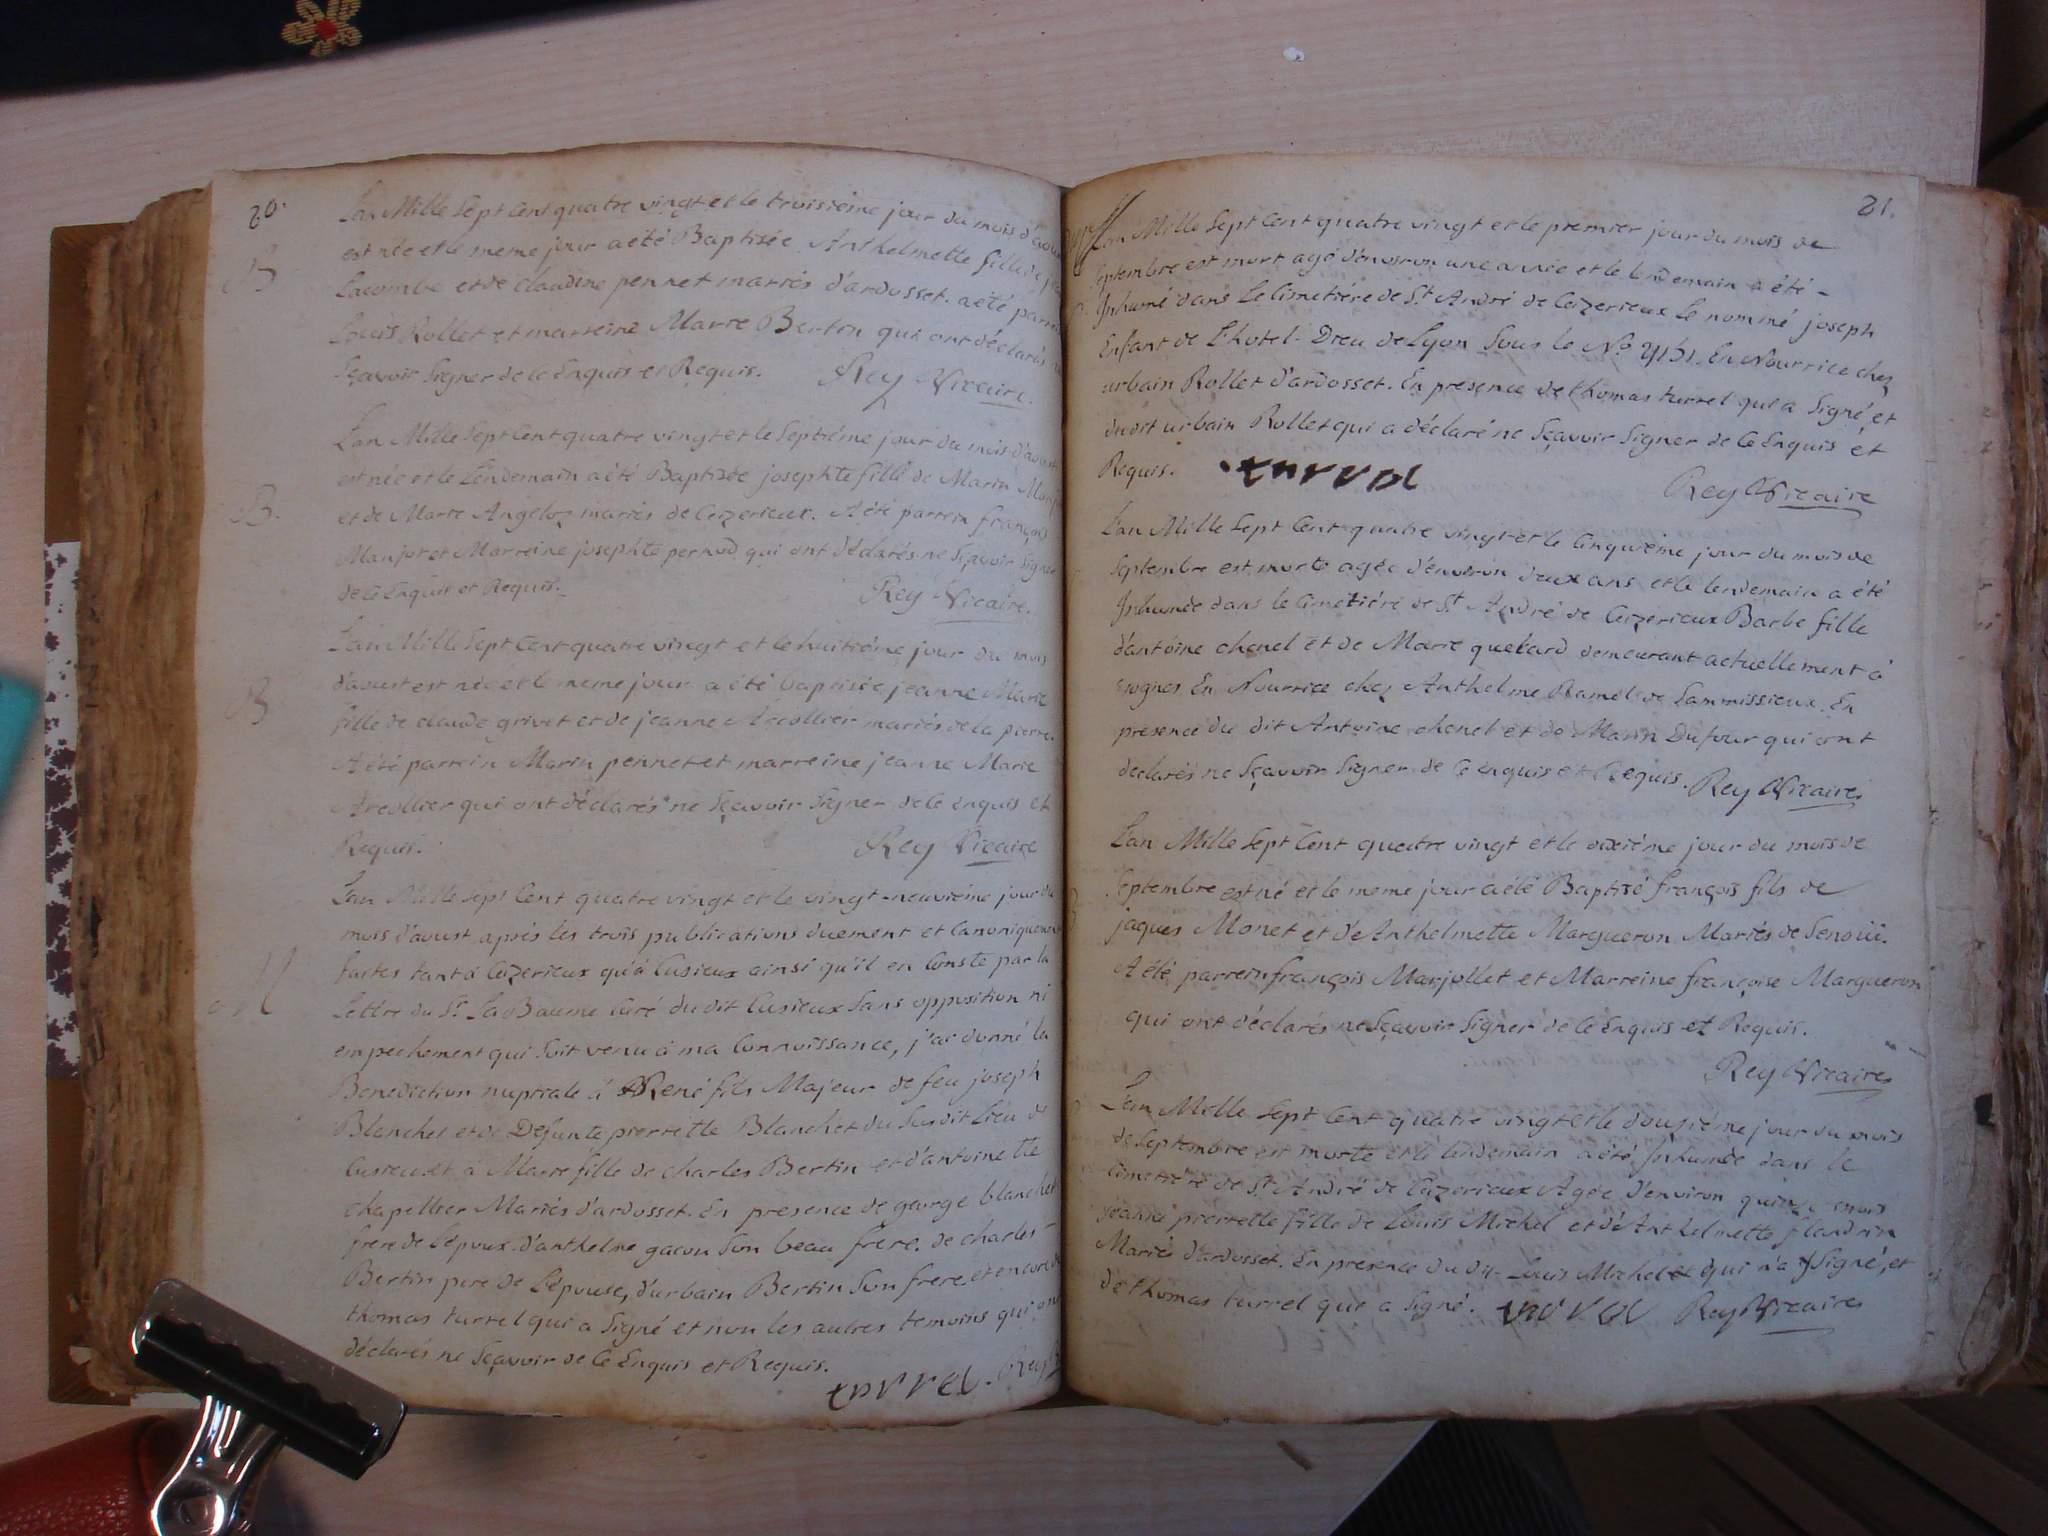 80.
Lan Mille Sept Cent quatre vingt et le troisiéme jour du mois d'aoust
B est née et le meme jour a été Baptisée Anthelmette fille de
Lacombe et de claudine pennet mariés d'ardosset. a été parrein
Louis Rollet et marreine Marie Bertin qui ont déclarés ne
Sçavoir Signer de ce Enquis et Requis. Rey Vicaire.
Lan Mille Sept Cent quatre vingt et le Septiéme jour du mois d'aoust
est née et le Lendemain a été Baptisée josephte fille de Marin
B. et de Marie Angelot mariés de Ceizerieux. A été parrein françois
Marjot et Marreine josephte pernod qui ont déclarés ne Sçavoir Signer
de ce Enquis et Requis. Rey Vicaire.
L'an Mille Sept Cent quatre vingt et le huitiéme jour du mois
B d'aoust est née et le meme jour a été baptisée jeanne Marie
fille de claude grivet et de jeanne Arcollier mariés de la pierre.
A été parrein Marin pennet et marreine jeanne Marie
Arcollier qui ont déclarés ne Sçavoir Signer de ce enquis et
Requis. Rey Vicaire
Lan Mille Sept Cent quatre vingt et le vingt-neuviéme jour du
mois d'aoust aprés les trois publications duement et Canoniquement
M faites tant à Ceizerieux qu'à Cusieux ainsi qu'il en Conste par la
Lettre du Sr. La Baume Curé du dit Cusieux Sans opposition ni
empechement qui Soit venu à ma Connoissance, j'ai donné la
Benediction nuptiale à René fils Majeur de feu joseph
Blanchet et de Defunte pierrette Blanchet du Susdit Lieu de
Cusieux et à Marie fille de charles Bertin et d'antoinette
chapellier Mariés d'ardosset. En presence de george blanchet
frere de l'époux. d'anthelme gacon Son beau frere. de charles
Bertin pere de L'épouse, d'urbain Bertin Son frere, et encore de
thomas turrel qui a Signé et non les autres temoins qui ont
déclarés ne Sçavoir de ce Enquis et Requis.
turrel. Rey
81.
Lan Mille Sept Cent quatre vingt et le premier jour du mois de
Septembre est mort agé d'environ une année et le lendemain a été
Inhumé dans Le Cimetiére de St André de Ceizerieux Le nommé joseph
Enfant de L'hotel-Dieu de Lyon Sous le No En Nourrice chez
urbain Rollet d'ardosset. En presence de thomas turrel qui a Signé et
du dit urbain Rollet qui a déclaré ne Sçavoir Signer de Ce Enquis et
Requis. turrel Rey Vicaire
Lan Mille Sept Cent quatre vingt et le Cinquiéme jour du mois de
Septembre est morte agée d'environ deux ans et le lendemain a été
Inhumée dans le Cimetiére de St André de Ceizerieux Barbe fille
d'antoine chenel et de Marie demeurant actuellement à
En Nourrice chez Anthelme Ramel de Lammissieux. En
presence du dit Antoine chenel et de Marin Dufour qui ont
declarés ne Sçavoir Signer de Ce enquis et Requis. Rey Vicaire
Lan Mille Sept Cent quatre vingt et le dixiéme jour du mois de
Septembre est né et le meme jour a été Baptisé françois fils de
jaques Monet et d'Anthelmette Margueron Mariés de Senoüi.
A été parrein françois Marjollet et Marreine françoise Margueron
qui ont déclarés ne Sçavoir Signer de Ce Enquis et Requis.
Rey Vicaire
Lan Mille Sept Cent quatre vingt et le douziéme jour du mois
de Septembre est morte et le lendemain a été Inhumée dans le
Cimetiére de St André de Ceizerieux Agée d'environ quinze mois
jeanne pierrette fille de Louis Michel et d'Anthelmette flandrin
Mariés d'ardosset. En presence du dit Louis Michel qui n'a Signé, et
de thomas turrel qui a Signé. turrel Rey Vicaire